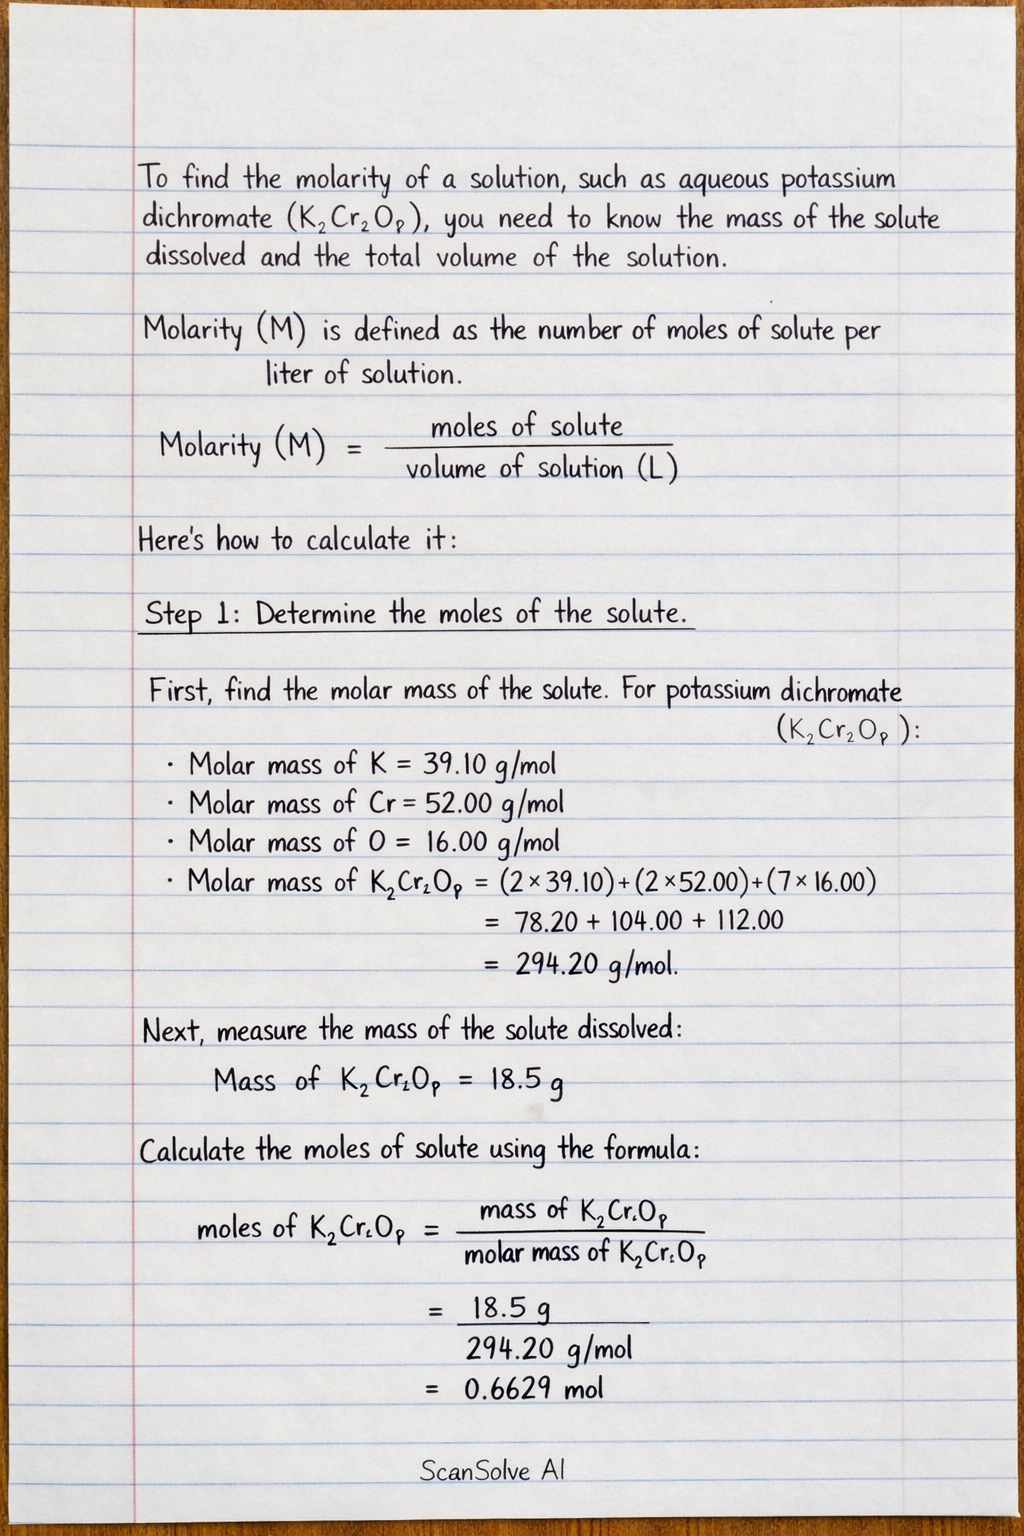 To find the molarity of a solution, such as aqueous potassium
dichromate (K₂Cr₂Oₚ), you need to know the mass of the solute
dissolved and the total volume of the solution.
Molarity (M) is defined as the number of moles of solute per
liter of solution.
Molarity (M) = moles of solute / volume of solution (L)
Here's how to calculate it:
Step 1: Determine the moles of the solute.
First, find the molar mass of the solute. For potassium dichromate
(K₂Cr₂Oₚ):
· Molar mass of K = 39.10 g/mol
· Molar mass of Cr = 52.00 g/mol
· Molar mass of O = 16.00 g/mol
· Molar mass of K₂Cr₂Oₚ = (2×39.10)+(2×52.00)+(7×16.00)
= 78.20 + 104.00 + 112.00
= 294.20 g/mol.
Next, measure the mass of the solute dissolved:
Mass of K₂Cr₂Oₚ = 18.5 g
Calculate the moles of solute using the formula:
moles of K₂Cr₂Oₚ = mass of K₂Cr₂Oₚ / molar mass of K₂Cr₂Oₚ
= 18.5 g / 294.20 g/mol
= 0.6629 mol
ScanSolve AI